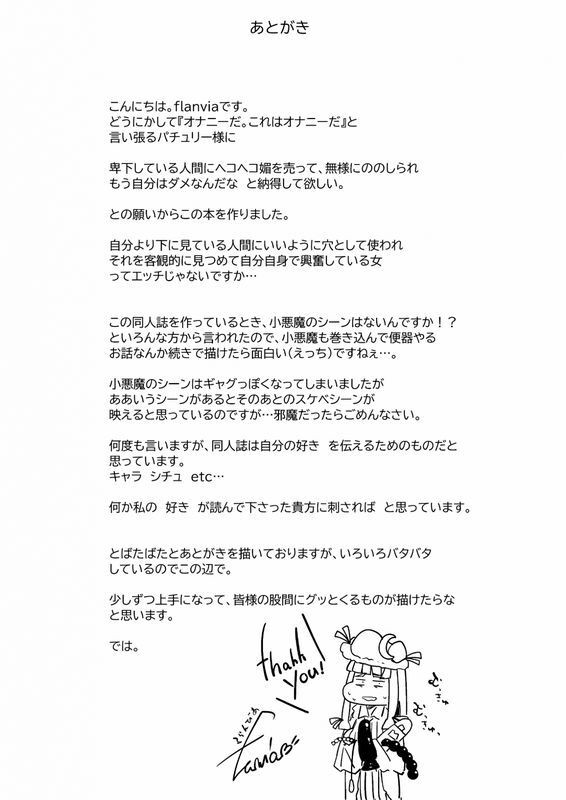 あとがき
こんにちは。flanviaです。
どうにかして『オナニーだ。これはオナニーだ』と
言い張るパチュリー様に
卑下している人間にヘコヘコ媚を売って、無様にののしられ
もう自分はダメなんだな　と納得して欲しい。
との願いからこの本を作りました。
自分より下に見ている人間にいいように穴として使われ
それを客観的に見つめて自分自身で興奮している女
ってエッチじゃないですか…
この同人誌を作っているとき、小悪魔のシーンはないんですか！？
といろんな方から言われたので、小悪魔も巻き込んで便器やる
お話なんか続きで描けたら面白い(えっち)ですねぇ…。
小悪魔のシーンはギャグっぽくなってしまいましたが
ああいうシーンがあるとそのあとのスケベシーンが
映えると思っているのですが…邪魔だったらごめんなさい。
何度も言いますが、同人誌は自分の好き　を伝えるためのものだと
思っています。
キャラ　シチュ　etc…
何か私の　好き　が読んで下さった貴方に刺されば　と思っています。
とばたばたとあとがきを描いておりますが、いろいろバタバタ
しているのでこの辺で。
少しずつ上手になって、皆様の股間にグッとくるものが描けたらな
と思います。
では。
thank
you!
ふらんびあ
むきゅ
むきゅ